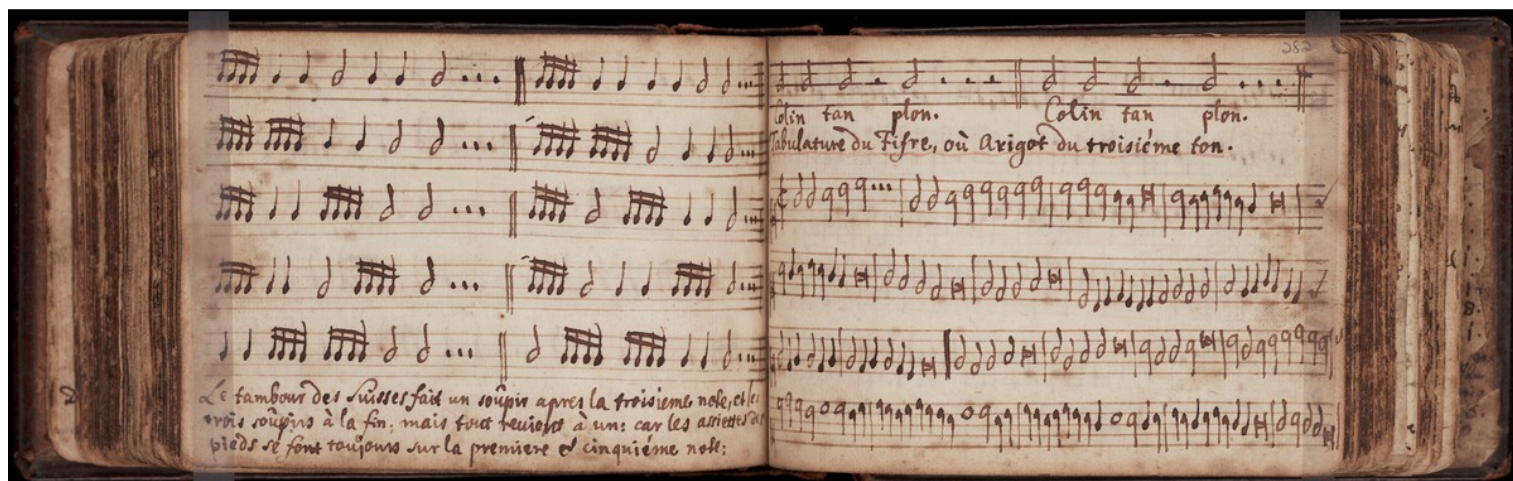 Le tambour des Suisses fait un soûpir apres la troisiéme note, et les
trois soûpirs à la fin: mais tout revient à un: car les assiettes des
pieds se font toujours sur la premiere & cinquiéme note:
282
Colin tan plon. Colin tan plon.
Tabulature du Fifre, où Arigot du troisiéme ton.